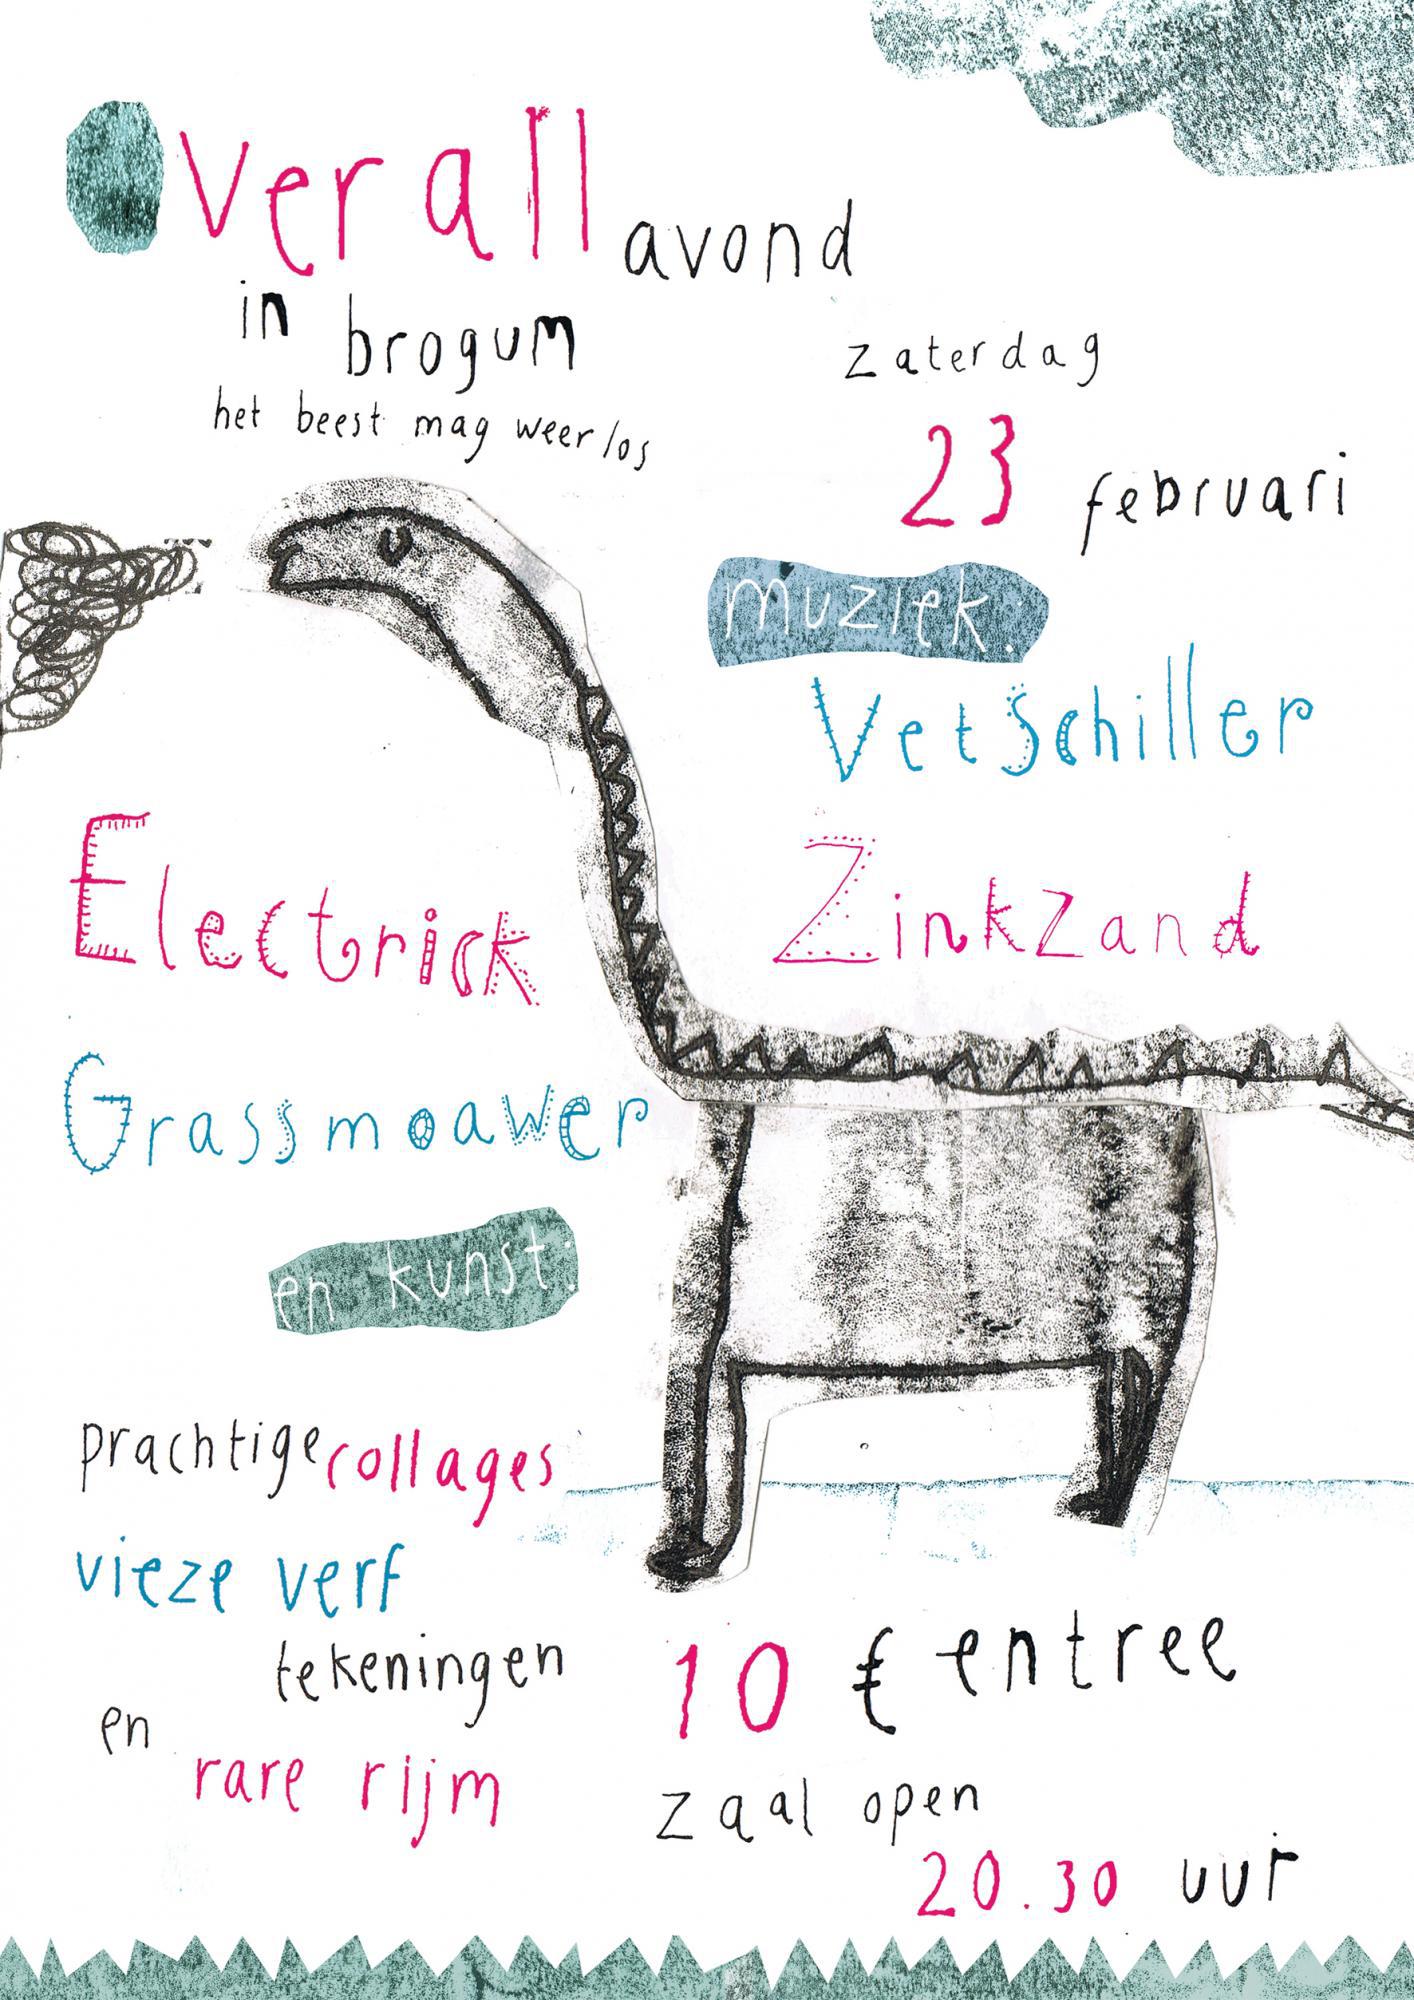 Overall avond
in brogum
het beest mag weer los
zaterdag
23 februari
muziek:
Vetschiller
Zinkzand
Electrick
Grassmoawer
en kunst:
prachtige collages
vieze verf
tekeningen
en
rare rijm
10 € entree
zaal open
20.30 uur